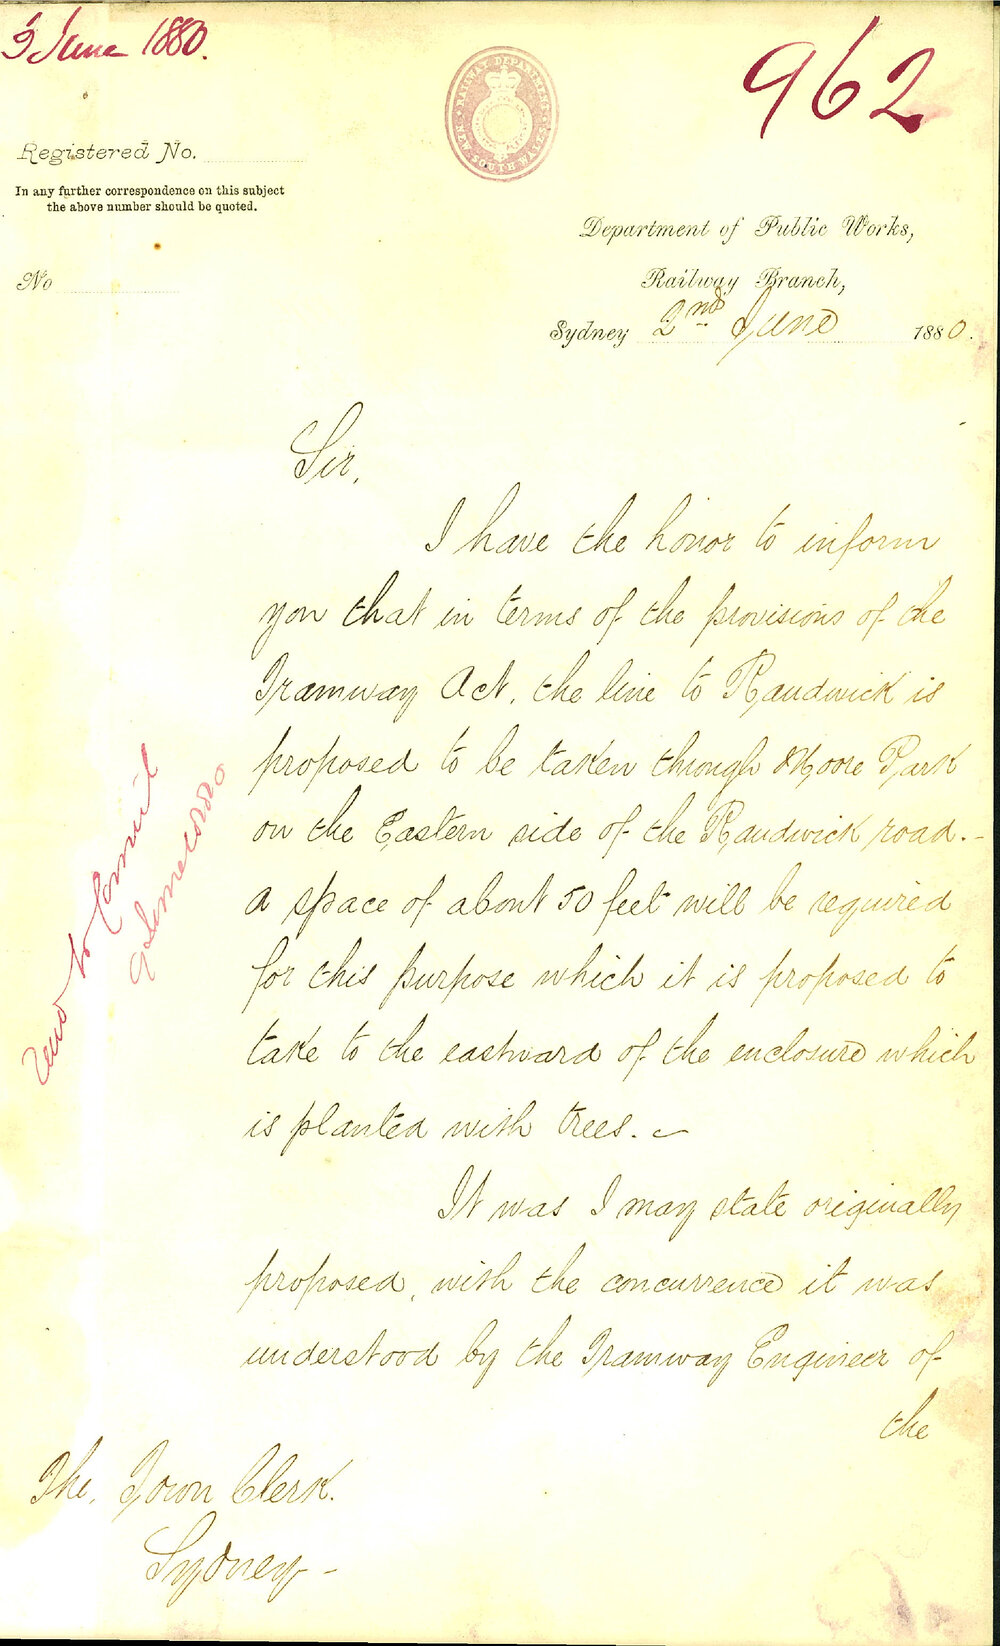 3 June 1880.
962
RAILWAY DEPARTMENT
NEW SOUTH WALES
Registered No.
In any further correspondence on this subject
the above number should be quoted.
No
Department of Public Works,
Railway Branch,
Sydney 2nd June 1880.
Sir,
I have the honor to inform
you that in terms of the provisions of the
Tramway Act, the line to Randwick is
proposed to be taken through Moore Park
on the Eastern side of the Randwick road. -
a space of about 50 feet will be required
for this purpose which it is proposed to
take to the eastward of the enclosure which
is planted with trees. -
It was I may state originally
proposed, with the concurrence it was
understood by the Tramway Engineer of
the
The Town Clerk.
Sydney -
to Council